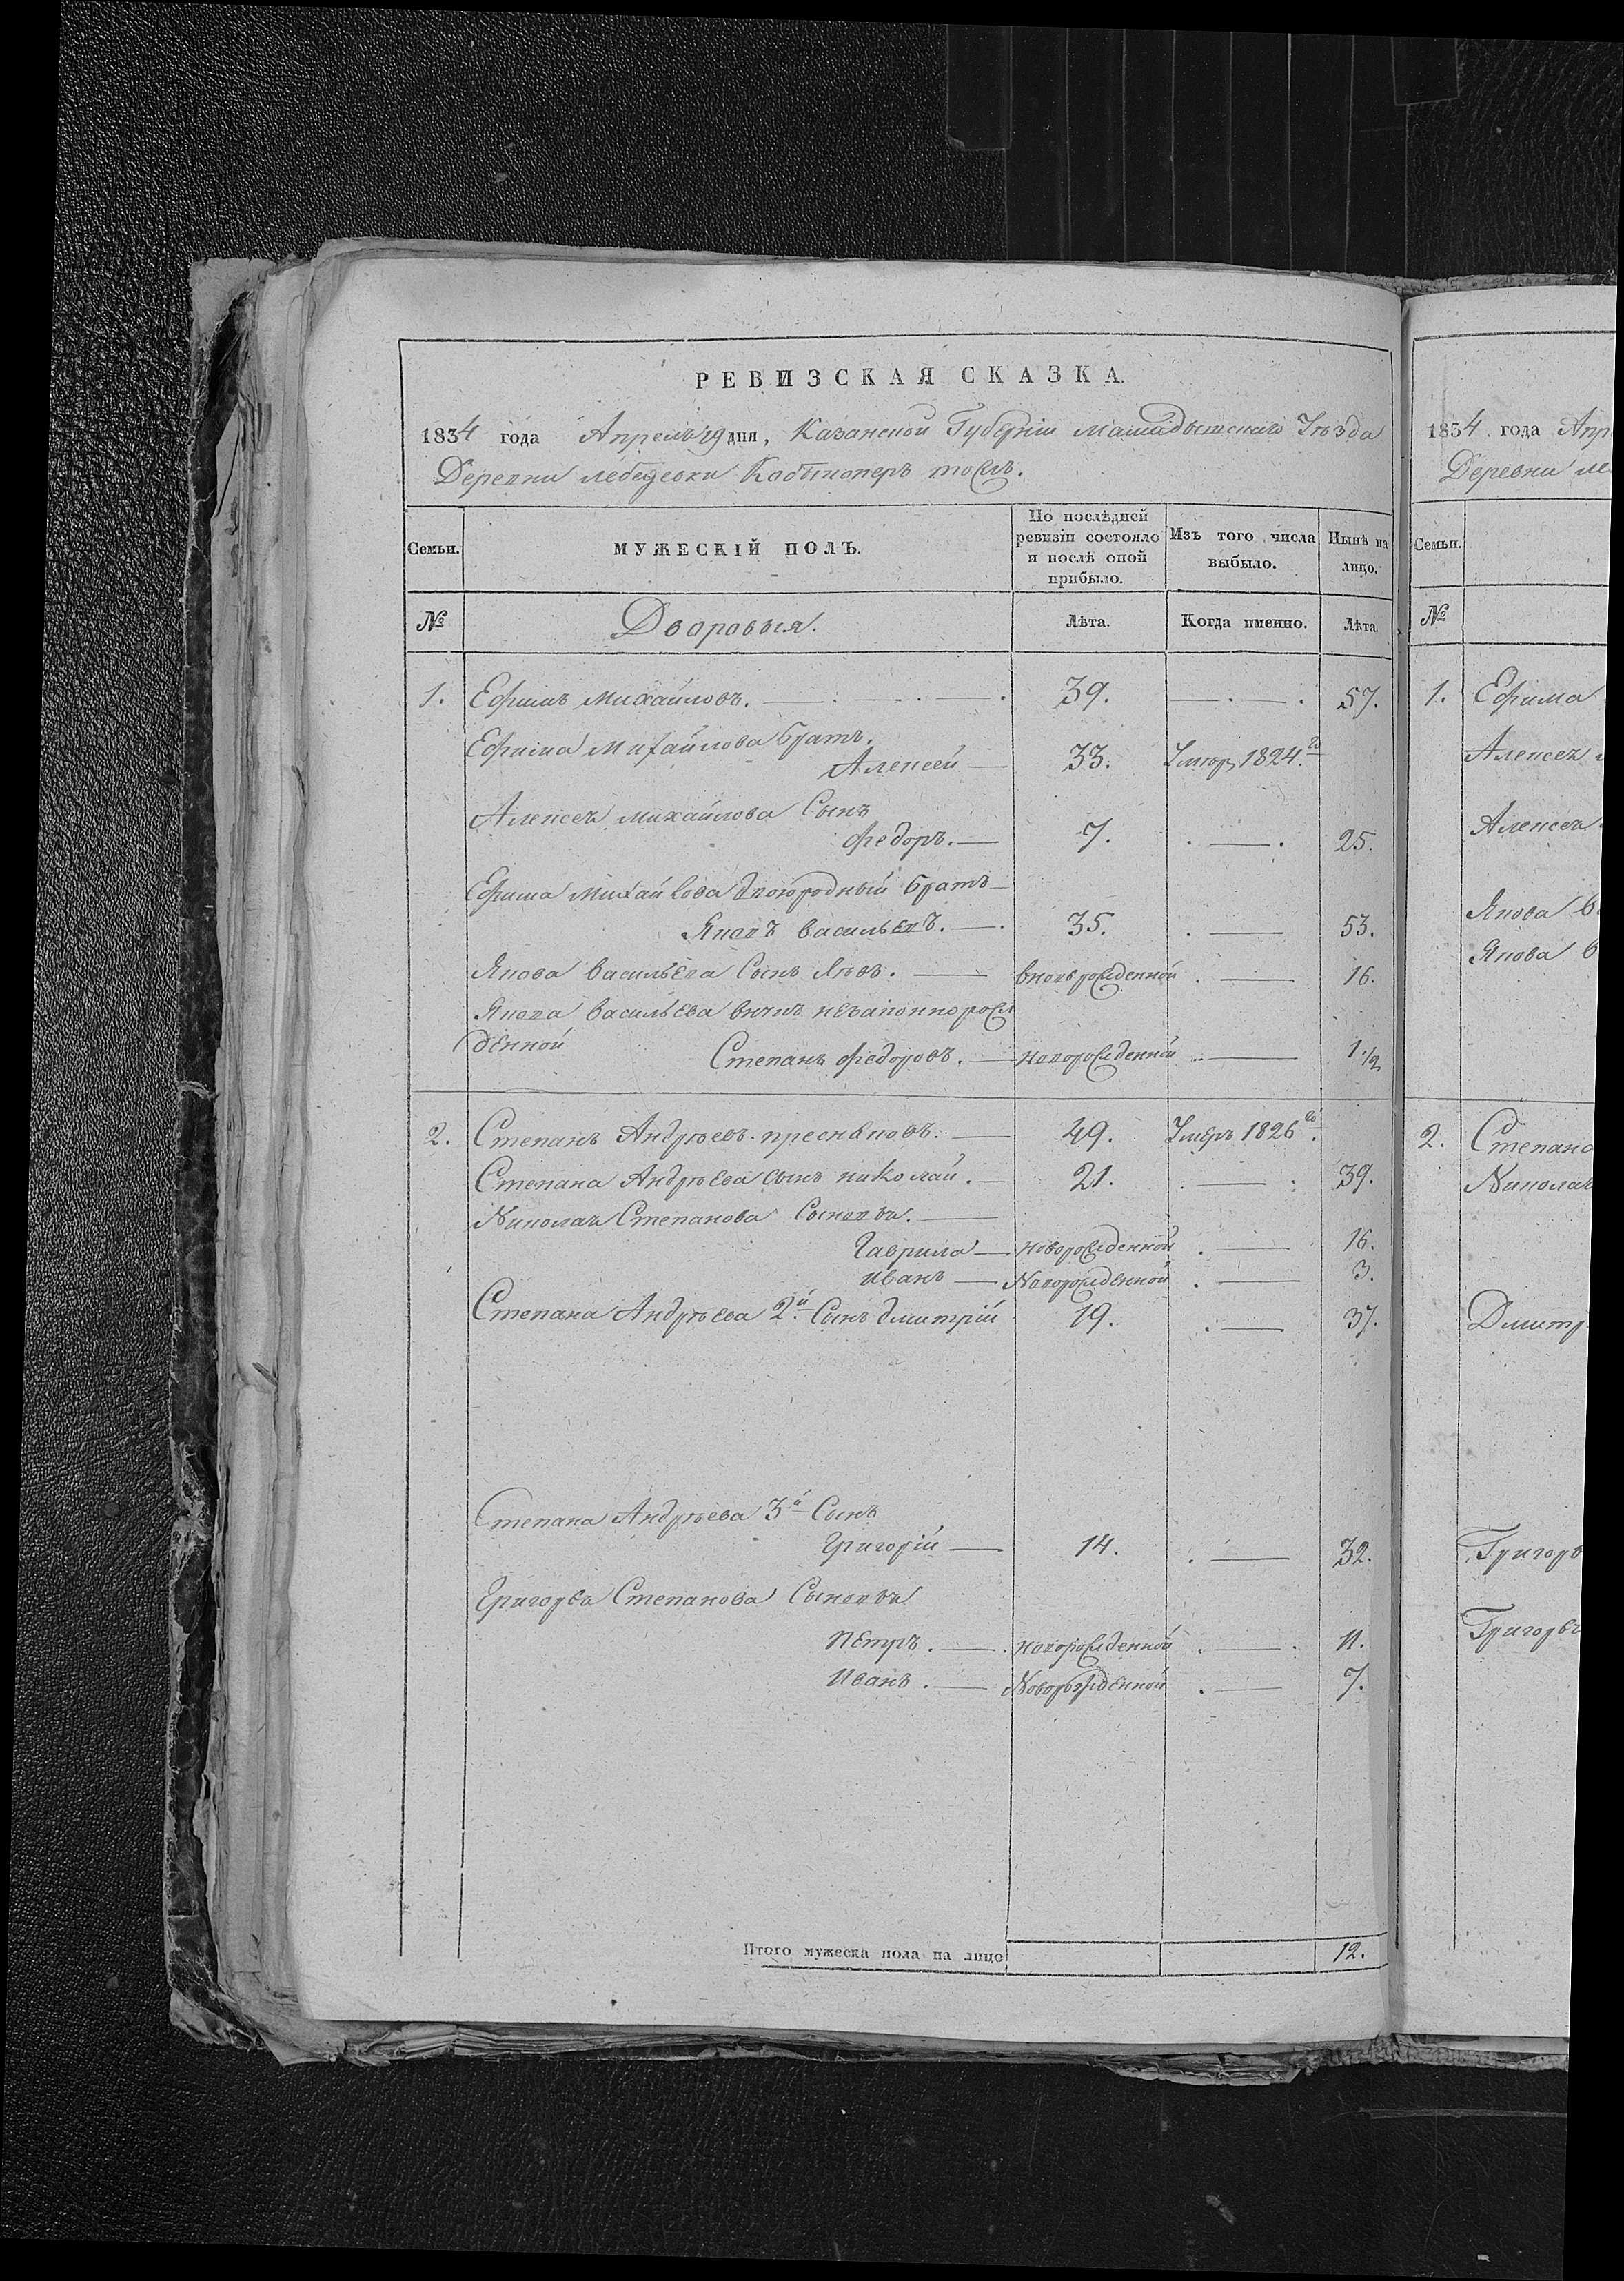 РЕВИЗСКАЯ СКАЗКА.
1834 года Апреля 29 дня, Казанской Губерніи Мамадышскаго Уѣзда
Деревни лебедевки Кабыкоперъ тожъ.
Семьи.
МУЖЕСКІЙ ПОЛЪ.
По послѣдней ревизіи состояло и послѣ оной прибыло.
Изъ того числа выбыло.
Нынѣ на лицо.
№
Дворовыя.
Лѣта.
Когда именно.
Лѣта.
1. Ефимъ Михайловъ. 39. 57.
Ефима Михайлова братъ.
Алексей 33. Умеръ 1824.го
Алексея михайлова Сынъ
Федоръ. 7. 25.
Ефима Михайлова двоюродный братъ
Яковъ васильевъ. 35. 53.
Якова васильева Сынъ Яковъ. вновьрожденной 16.
Якова васильева внукъ незаконнорож
денной
Степанъ Федоровъ. новорожденной 1 1/2
2. Степанъ Андрѣевъ пресняковъ. 49. Умеръ 1826.го
Степана Андрѣева сынъ николай. 21. 39.
Николая Степанова Сыновья.
Гаврила новорожденной 16.
Иванъ Новорожденной 3.
Степана Андрѣева 2.й Сынъ дмитрій 19. 37.
Степана Андрѣева 3й Сынъ
Григорій 14. 32.
Григорья Степанова Сыновья
Петръ. новорожденной 11.
Иванъ. Новорожденной 7.
Итого мужеска пола на лицо 12.
1834 года Апр
Деревни ле
Семьи.
№
1. Ефима
Алексея
Алексея
Якова в
Якова в
2. Степана
Николая
Дмитр
Григорь
Григорья